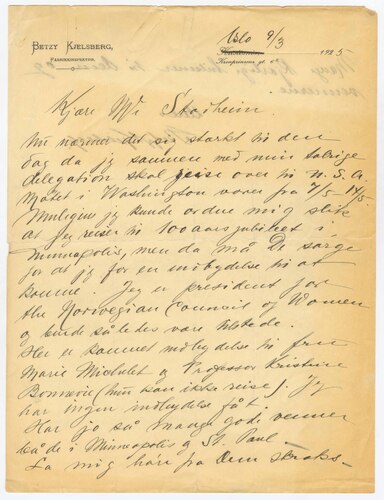 BETZY KJELSBERG,
FABRIKINSPEKTRICE.
Oslo 9/3 1925
Kjære Mr. Stadheim.
Nu nærmer det sig stærkt til den
dag da jeg sammen med min talrige
delegation skal reise over til U.S.A.
Møtet i Washington varer fra 4/5 14/5
Muligens jeg kunde ordne mig slik
at jeg reiser til 100 aars jubilæet i
Minneapolis, men da må De sørge
for at jeg får en indbydelse til at
komme. Jeg er president for
the Norwegian Council of Women
og burde således være tilstede.
Her er kommet indbydelse til fru
Marie Michelet og Professor Kristine
Bonnevie (hun kan ikke reise). Jeg
har ingen indbydelse fåt.
Har jo så mange gode venner
både i Minneapolis og St. Paul —
La mig høre fra Dem straks —